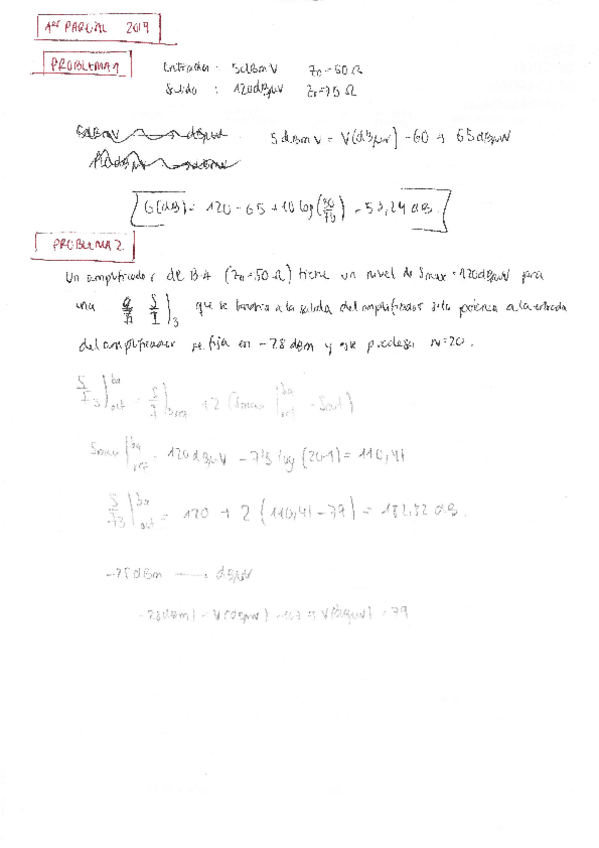 1er PARCIAL 2019
PROBLEMA 1
Entrada: 5dBmV Zo=50Ω
Salida : 120dBμV Zo=75Ω
5dBmV = V(dBμV) - 60 → 65dBμV
G(dB) = 120 - 65 + 10 log( ) = 53,24 dB
PROBLEMA 2
Un amplificador de BA (Zo=50Ω) tiene un nivel de Smax=120dBμV para
una S/I|3 que se a la salida del amplificador si la potencia a la entrada
del amplificador se fija en -28 dBm y que N=20.
S/I3|out ba = S/I|3ref + 2 (Smax|ref ba - Sout)
Smax|ref ba = 120dBμV - 7,5 log (20-1) = 110,41
S/I3|out ba = + 2 (110,41 - 79) = dB.
dBm → dBμV
-28dBm = V(dBμV) - 107 → V(dBμV) = 79